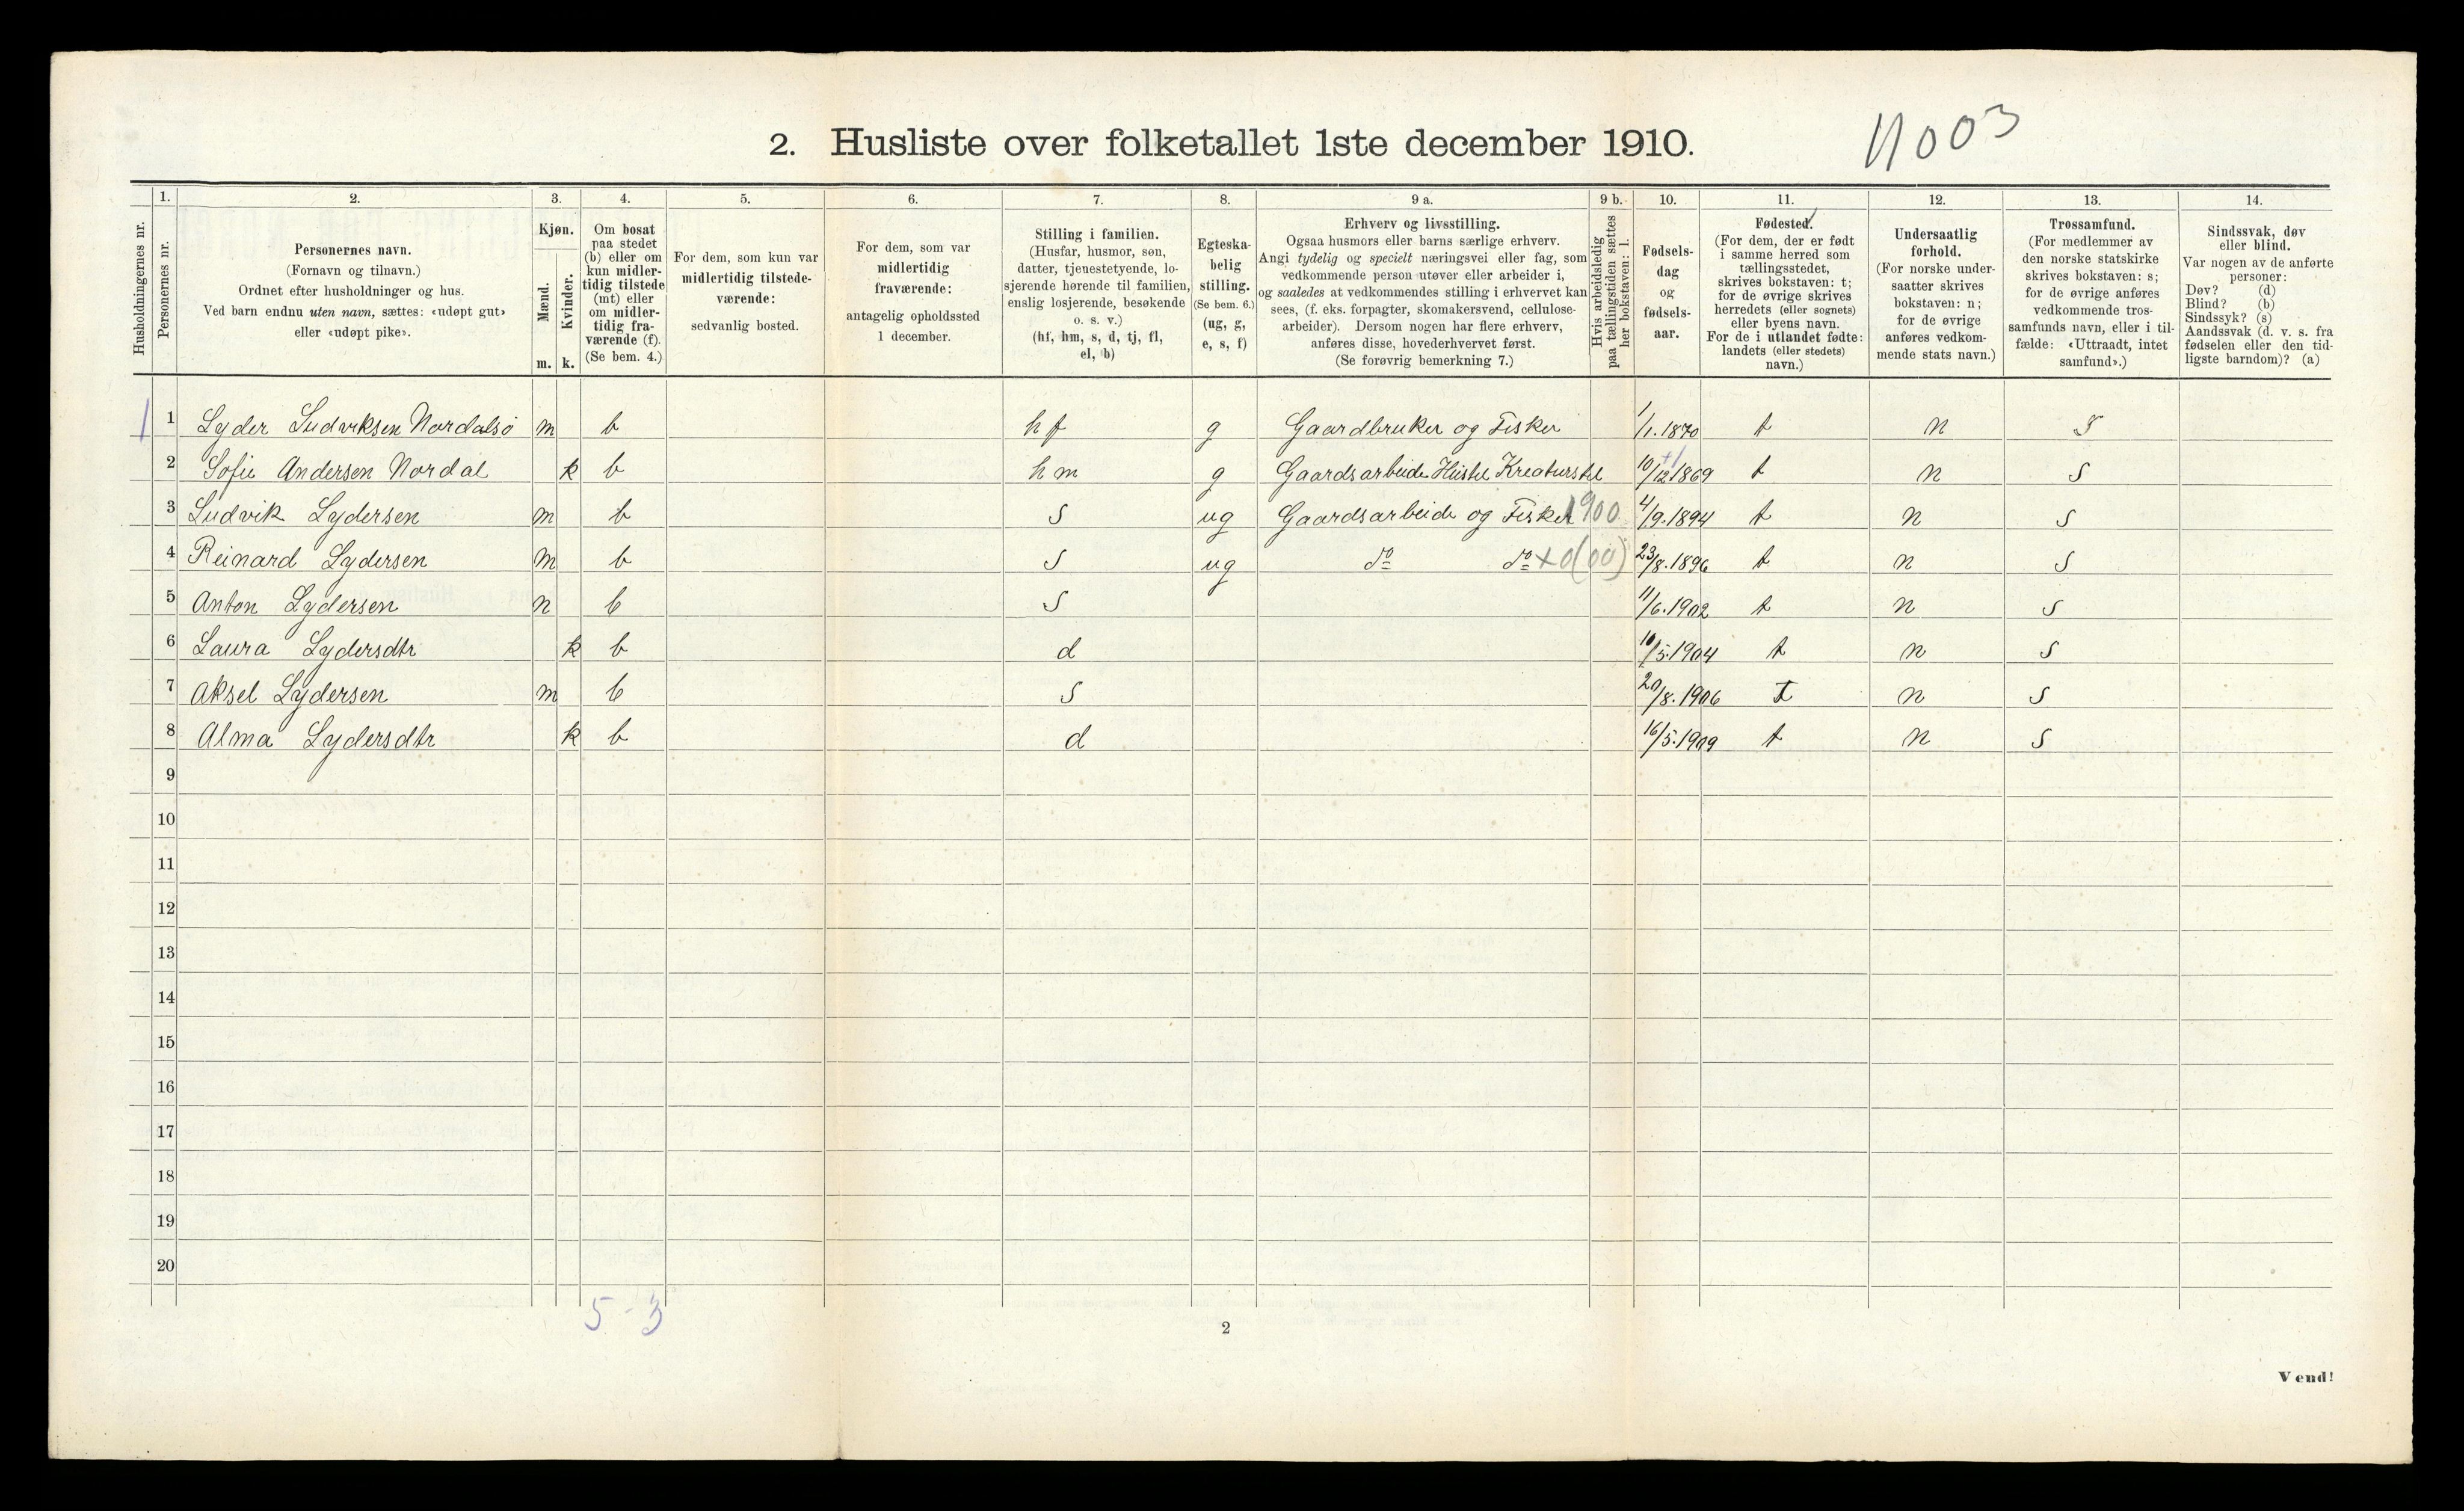 2. Husliste over folketallet 1ste december 1910.
Husholdningernes nr.
1.
Personernes nr.
2.
Personernes navn.
(Fornavn og tilnavn.)
Ordnet efter husholdninger og hus.
Ved barn endnu uten navn, sættes: «udøpt gut»
eller «udøpt pike».
3.
Kjøn.
Mænd.
m.
Kvinder.
k.
4.
Om bosat
paa stedet
(b) eller om
kun midler-
tidig tilstede
(mt) eller
om midler-
tidig fra-
værende (f).
(Se bem. 4.)
5.
For dem, som kun var
midlertidig tilstede-
værende:
sedvanlig bosted.
6.
For dem, som var
midlertidig
fraværende:
antagelig opholdssted
1 december.
7.
Stilling i familien.
(Husfar, husmor, søn,
datter, tjenestetyende, lo-
sjerende hørende til familien,
enslig losjerende, besøkende
o. s. v.)
(hf, hm, s, d, tj, fl,
el, b)
8.
Egteska-
belig
stilling.
(Se bem. 6.)
(ug, g,
e, s, f)
9 a.
Erhverv og livsstilling.
Ogsaa husmors eller barns særlige erhverv.
Angi tydelig og specielt næringsvei eller fag, som
vedkommende person utøver eller arbeider i,
og saaledes at vedkommendes stilling i erhvervet kan
sees, (f. eks. forpagter, skomakersvend, cellulose-
arbeider). Dersom nogen har flere erhverv,
anføres disse, hovederhvervet først.
(Se forøvrig bemerkning 7.)
9 b.
Hvis arbeidsledig
paa tællingstiden sættes
her bokstaven: l.
10.
Fødsels-
dag
og
fødsels-
aar.
11.
Fødested.
(For dem, der er født
i samme herred som
tællingsstedet,
skrives bokstaven: t;
for de øvrige skrives
herredets (eller sognets)
eller byens navn.
For de i utlandet fødte:
landets (eller stedets)
navn.)
12.
Undersaatlig
forhold.
(For norske under-
saatter skrives
bokstaven: n;
for de øvrige
anføres vedkom-
mende stats navn.)
13.
Trossamfund.
(For medlemmer av
den norske statskirke
skrives bokstaven: s;
for de øvrige anføres
vedkommende tros-
samfunds navn, eller i til-
fælde: «Uttraadt, intet
samfund».)
14.
Sindssvak, døv
eller blind.
Var nogen av de anførte
personer:
Døv? (d)
Blind? (b)
Sindssyk? (s)
Aandssvak (d. v. s. fra
fødselen eller den tid-
ligste barndom)? (a)
1 1 Lyder Ludvksen Nordalsö m b hf g Gaardbruker og Fisker 1/1.1870 t n S
2 Sofie Andersen Nordal k b hm g Gaardsarbeide Hüstel Kreaturstel 10/12 1869 t n S
3 Ludvik Lydersen m b S ug Gaardsarbeide og Fisker 1900 4/9.1894 t n S
4 Reinard Lydersen m b S ug do do +0(00) 23/8.1896 t n S
5 Anton Lydersen n b S 11/6.1902 t n S
6 Laura Lydersdtr k b d 10/5.1904 t n S
7 Aksel Lydersen m b S 20/8.1906 t n S
8 Alma Lydersdtr k b d 16/5.1909 t n S
9
10
11
12
13
14
15
16
17
18
19
20
5 - 3
2
Vend!